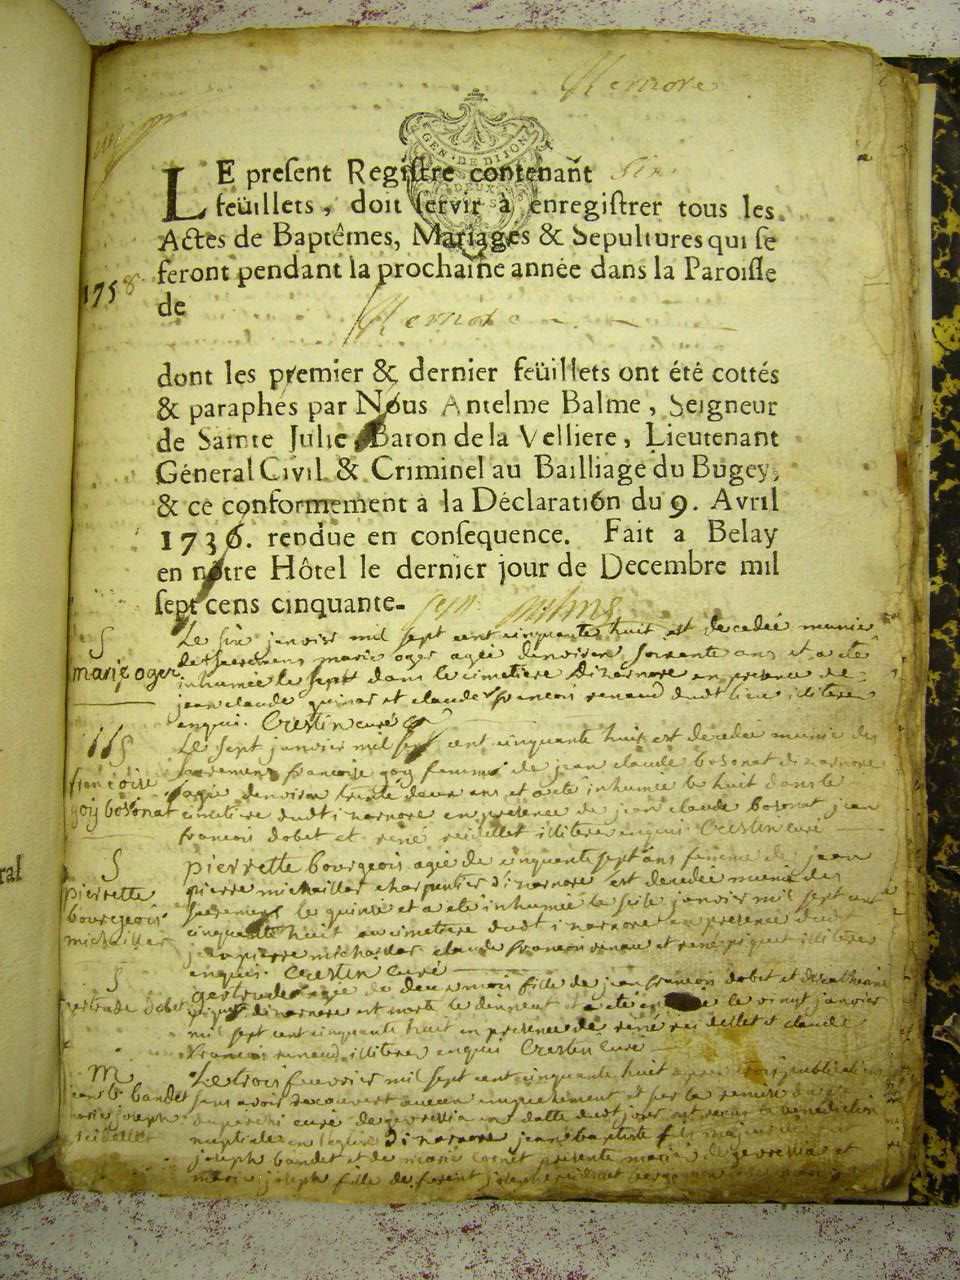 GEN. DE DIJON
DEUX S
LE preſent Regiſtre contenant Six
feüillets, doit ſervir à enregiſtrer tous les
Actes de Baptêmes, Mariages & Sepultures qui ſe
feront pendant la prochaine année dans la Paroiſſe
1758
de
dont les premier & dernier feüillets ont été cottés
& paraphés par Nous Antelme Balme, Seigneur
de Sainte Julie, Baron de la Velliere, Lieutenant
Général Civil & Criminel au Bailliage du Bugey,
& ce conformement à la Déclaration du 9. Avril
1736. rendue en conſequence. Fait a Belay
en nôtre Hôtel le dernier jour de Decembre mil
ſept cens cinquante-
S
marie oger
Le six janvier mil sept cent cinquante huit est decedée munie
des sacremens marie oger agée denviron soixante ans et a ete
inhumée le sept dans le cimetiere dizarnore en presence de
jean claude et claude francois renaud dudt lieu illiteres
enquis. Crestin curé
francoise
goÿ bosonat
Le sept janvier mil sept cent cinquante huit est decedee munie des
sacremens francoise goÿ femme de jean claude bosonat dizarnore
agée denviron trente deux ans et a ete inhumée le huit dans le
cimetiere dudt izarnore en presence de jean claude bosonat jean
francois dobet et rené reidellet illiteres enquis Crestin curé
S
pierrette
bourgeois
michaillet
pierrette bourgeois agée de cinquante sept ans femme de jean
pierre michaillet charpentier dizarnore est decedée munie des
sacremens le quinze et a ete inhumée le seize janvier mil sept cent
cinquante huit au cimetiere dudt izarnore en presence dudt
jean pierre michaillet claude francois renau et rené piquet illiteres
enquis. Crestin curé
S
gertrude dobet
gertrude agée de deux mois fille de jean francois dobet et de catherine
piquet dizarnore est morte le dixneuf et a ete le vingt janvier
mil sept cent cinquante huit en presence de rené reidellet et claude
francois renaud illiteres enquis Crestin curé
M
jean b. bandet
marie joseph
reidellet
Le trois fevrier mil sept cent cinquante huit apres trois publications
sans avoir decouvert aucun empechement et par la remise
curé de gevressia en datte dudt jour ont recu la benediction
nuptiale en l'eglise dizarnore jean baptiste fils
joseph bandet et de marie presente de gevressia et
marie joseph fille de